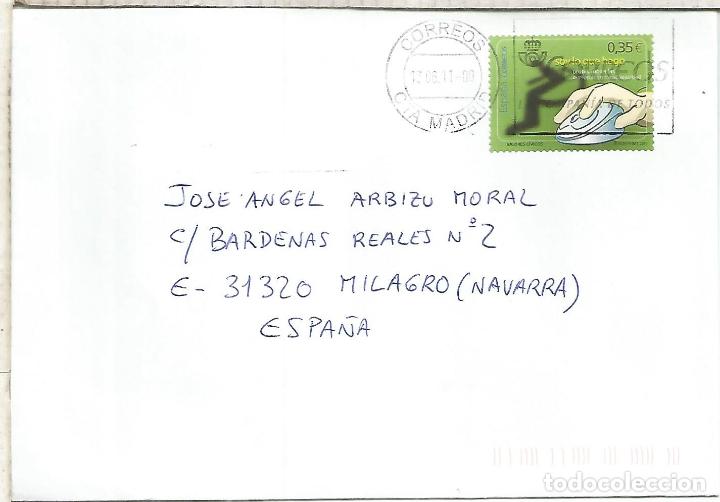 CORREOS
12 08 11-00
CTA MADRID
0,35€
España correos
soy lo que hago
CORREOS
LA COMPAÑÍA DE TODOS
VALORES CÍVICOS
JOSE ANGEL ARBIZU MORAL
C/ BARDENAS REALES Nº 2
E- 31320 MILAGRO (NAVARRA)
ESPAÑA
todocoleccion